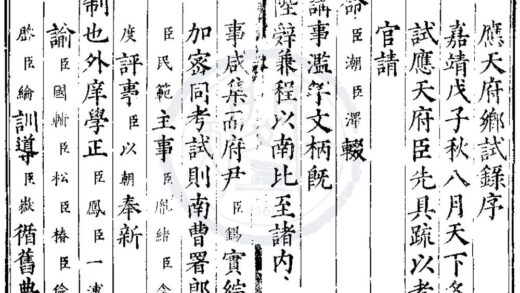 應天府鄉試錄序
嘉靖戊子秋八月天下
試應天府臣先具疏以考
官請
命臣潮臣澤輟
講事濫竽文柄既
陛辭兼程以南比至諸內
事咸集而府尹臣錫實綜
加密同考試則南曹署郎
臣民範主事臣胤緒臣
度評事臣以朝奉新
制也外庠學正臣鳳臣一
諭臣國斬臣松臣椿臣倫
臣綸訓導臣嶽循舊典